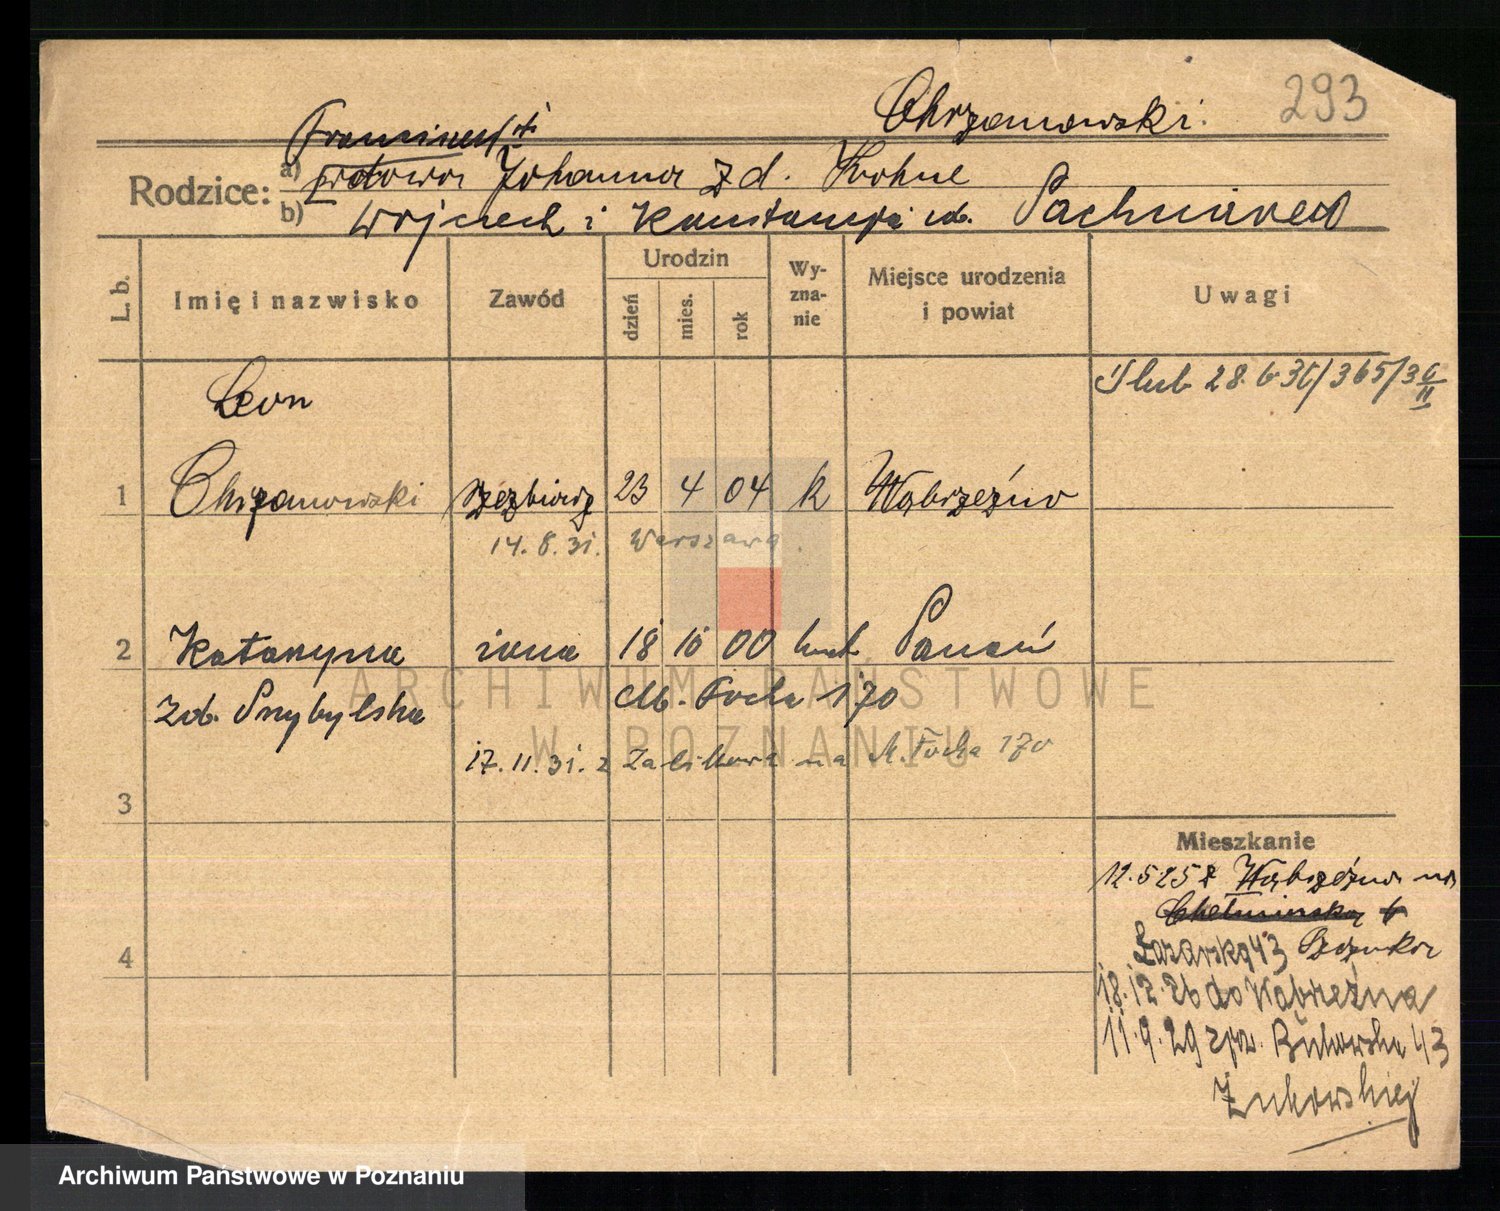 Chrzanowski.
293
Franciszek i
Rodzice: a) wdowa Johanna z d. Krohne
b) Wojciech i Konstancja zd.
L. b. Imię i nazwisko Zawód Urodzin dzień mies. rok Wy-zna-nie Miejsce urodzenia i powiat Uwagi
Ślub 28.6.36/365/36 II
Leon
1 Chrzanowski rzeźbiarz 23 4 04 k Wąbrzeźno
14. 8. 31. Warszawa.
2 Katarzyna żona 18 10 00 kat. Poznań
zd. Przybylska M. Focha 170
17. 11. 31. z na M. Focha 170
3
Mieszkanie
12.5 25 z Wąbrzeźna na
Chełmińską 6
4
Łazarska 43
18.12.26 do Wąbrzeźna
11.9.29 z pow. Bukowska 43
Żukowskiej
ARCHIWUM PAŃSTWOWE
W POZNANIU
Archiwum Państwowe w Poznaniu